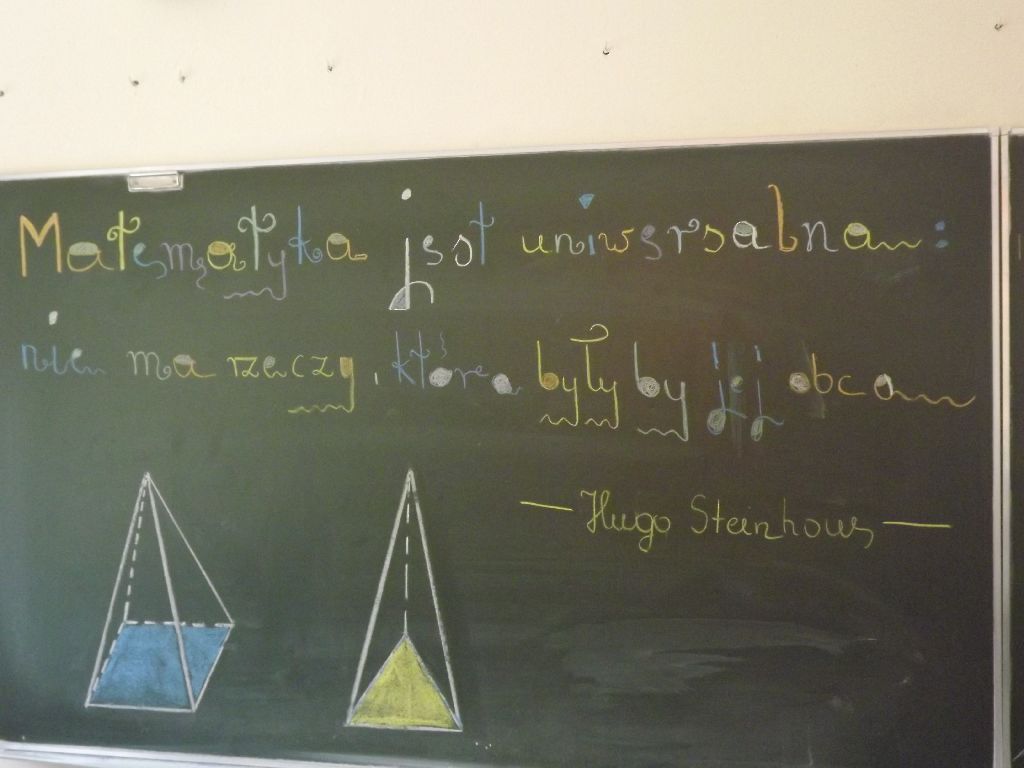 Matematyka jest uniwersalna:
nie ma rzeczy, która byłyby jej obca
— Hugo Steinhous —